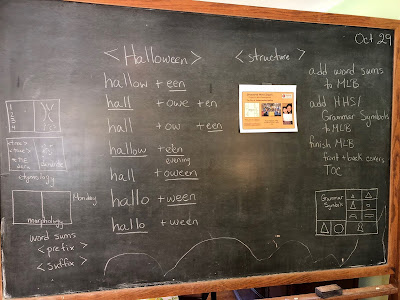 Oct 29
<Halloween>
hallow + een
hall + owe + en
hall + ow + een
hallow + e'en
evening
hall + oween
hallo + ween
hallo + ween
<structure>
add word sums
to MLB
add HHS/
Grammar Symbols
to MLB
finish MLB
front + back covers
TOC
Grammar
Symbols
1
2
3
4
etymology
Monday
morphology
word sums
<prefix>
<suffix>